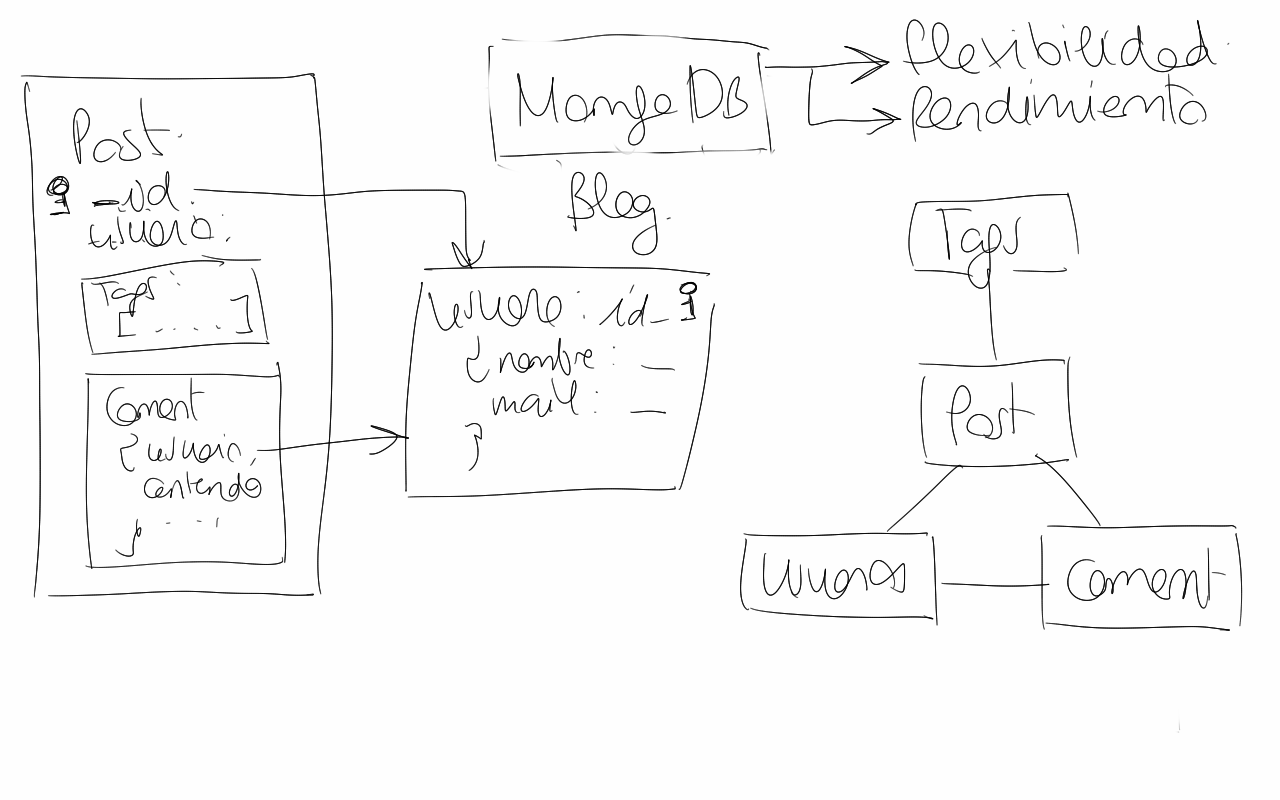 MongoDB
flexibilidad
Rendimiento
Blog.
Post
_id.
usuario.
Tags:
[.....]
Coment
{ usuario,
contenido
} ....
usuario: id_
{ nombre: __
mail: __
}
Tags
Post
Usuarios
Coment